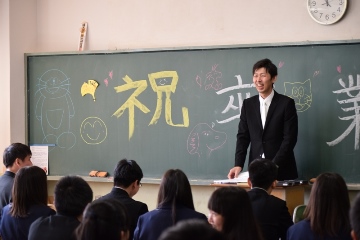 祝 卒業